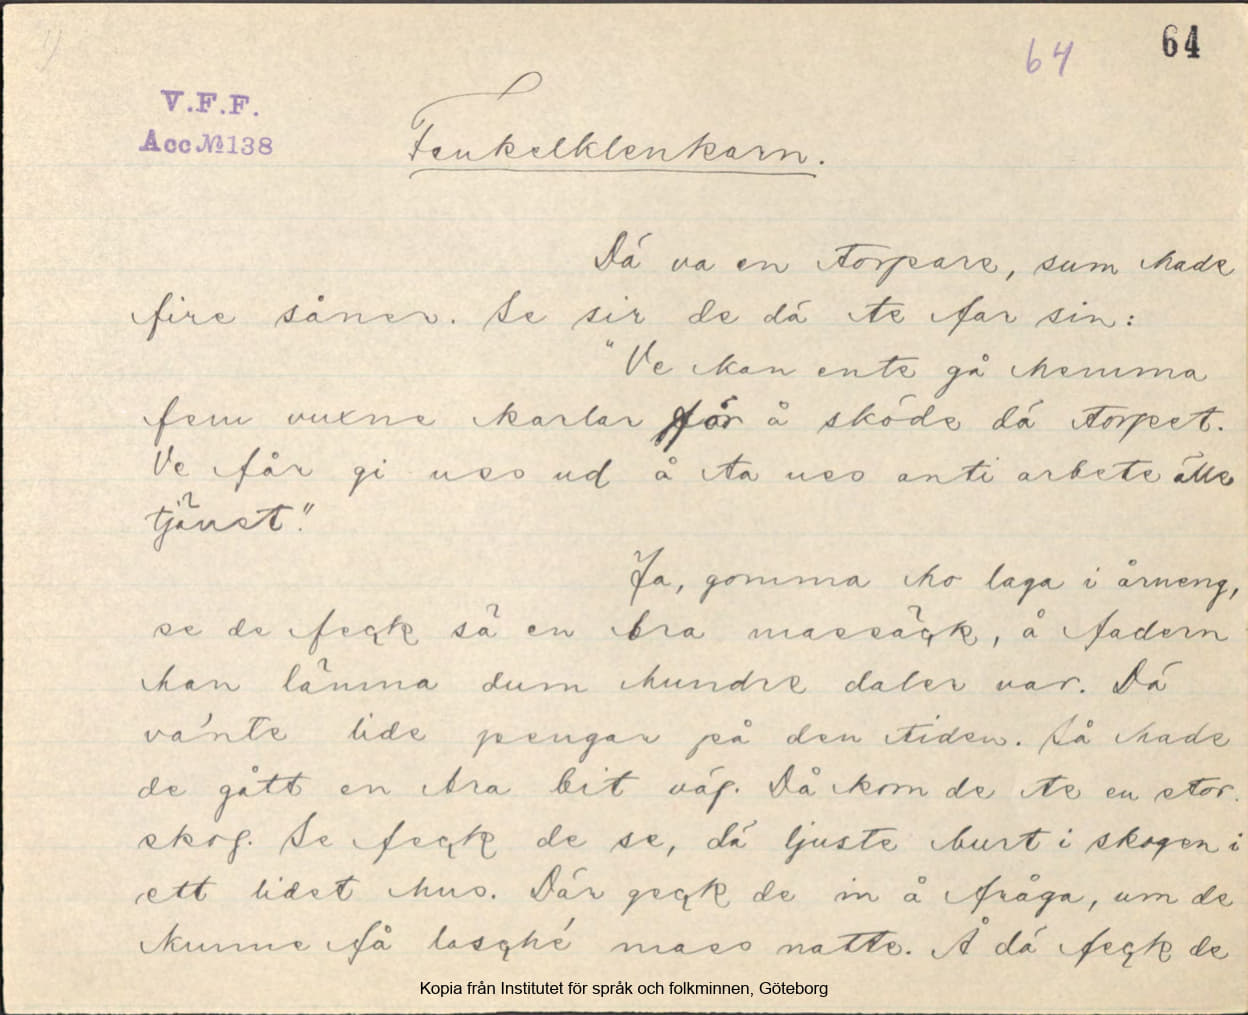 64
64
V.F.F.
Acc № 138
Fenkelklenkarn.
Dá va en torpare, sum hade
fire såner. Se sir de dá te far sin:
"Ve kan ente gå hemma
fem vuxne karlar för å sköde dá torpet.
Ve får gi uss ud å ta uss anti arbete älle
tjänst."
Ja, gomma ho laga i årneng,
se de feck sä en bra massäck, å fadern
han lämna dum hundre daler var. Dá
vánte lide pengar på den tiden. Så hade
de gått en bra bit väg. Då kom de te en stor
skog. Se feck de se, dá ljuste burt i skogen i
ett lidet hus. Där geck de in å fråga, um de
kunne få natte. Å dá feck de
Kopia från Institutet för språk och folkminnen, Göteborg